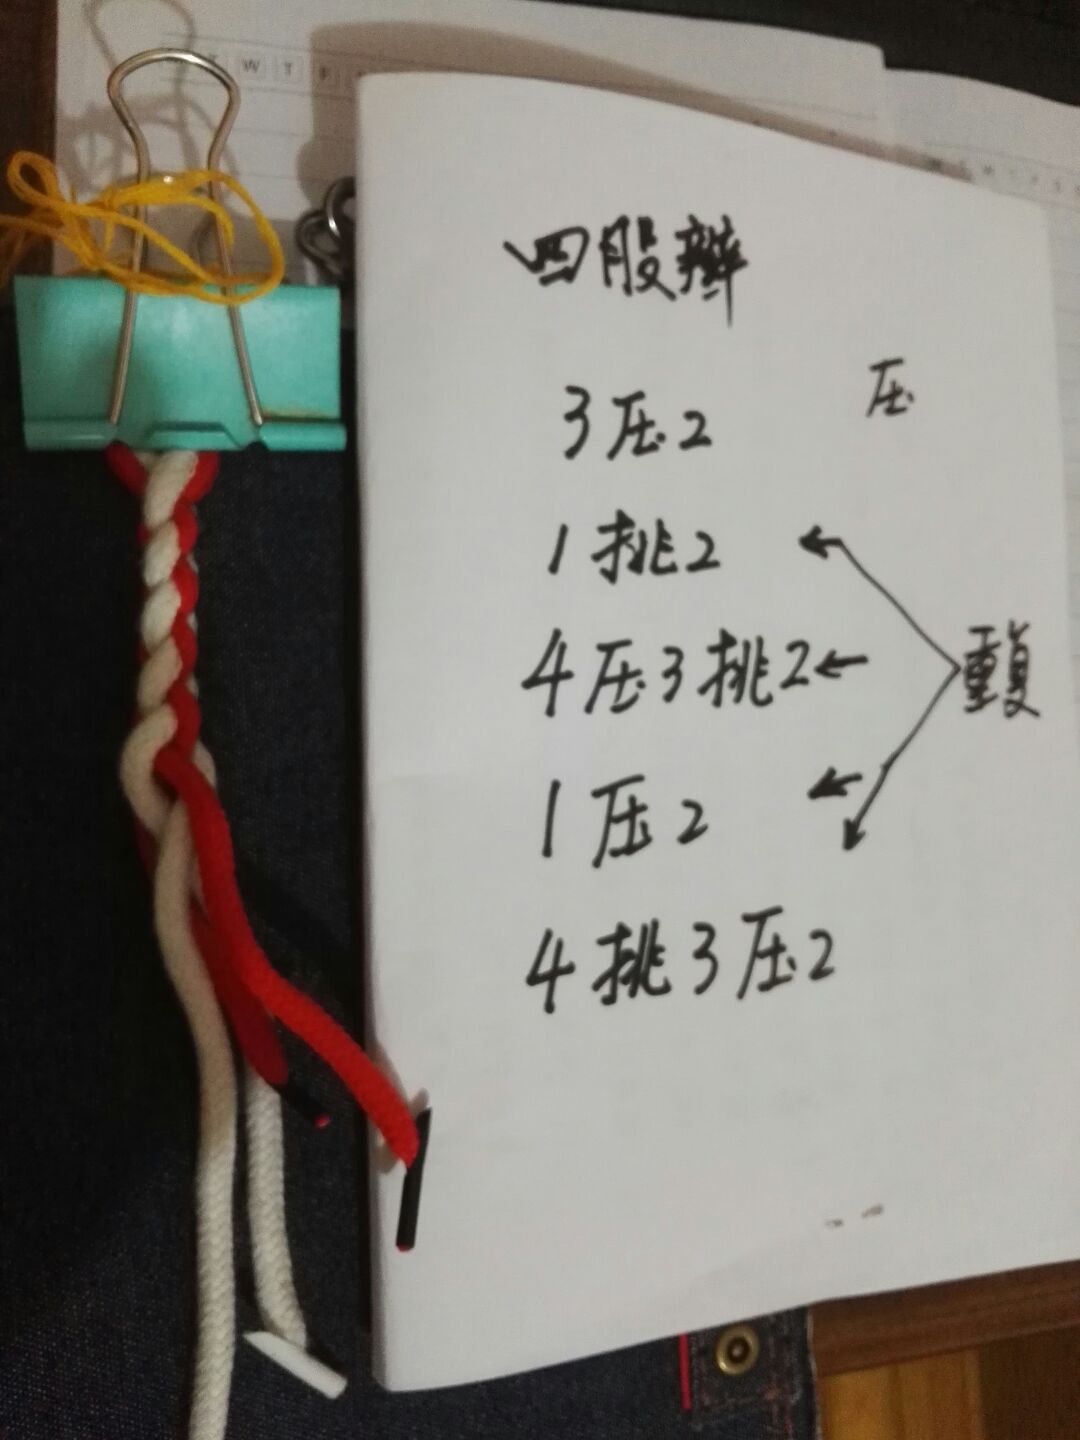 W T F
四股辫
3压2 压
1挑2
4压3挑2 重复
1压2
4挑3压2